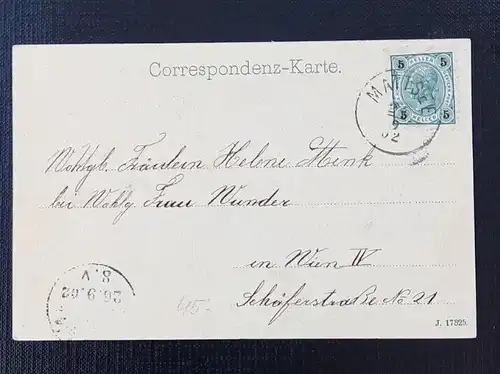 Correspondenz-Karte.
5 5
5 5
MATTSEE
9
02
Wohlgb. Fräulein Helene Mink
bei Wohlg. Frau Wunder
in Wien IV
Schäferstraße No 21
8.V
26.9.02
45-
J. 17325.